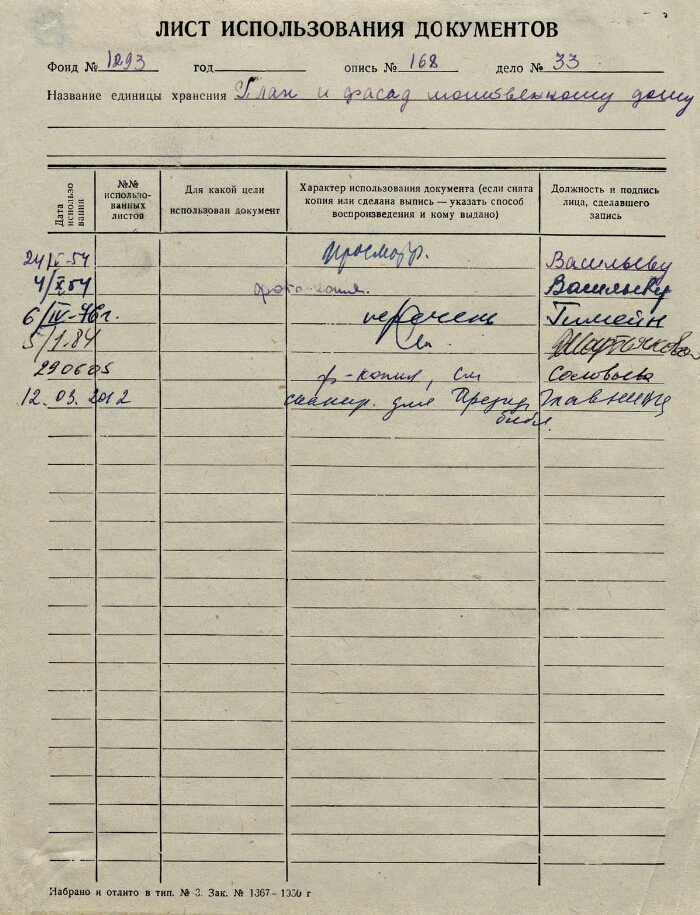 ЛИСТ ИСПОЛЬЗОВАНИЯ ДОКУМЕНТОВ
Фонд № 1293 год опись № 168 дело № 33
Название единицы хранения План и фасад молитвенному дому
Дата использования
№№ использованных листов
Для какой цели использован документ
Характер использования документа (если снята копия или сделана выпись — указать способ воспроизведения и кому выдано)
Должность и подпись лица, сделавшего запись
просмотр. Васильеву
4/X 54 фото-копия. Васильеву
6/IV-76г. перечень
5/1.84 см.
290605 ф-копия, см Соловьева
12.03.2012 сканир. для Презид.
библ.
Набрано и отлито в тип. № 3. Зак. № 1367—1950 г